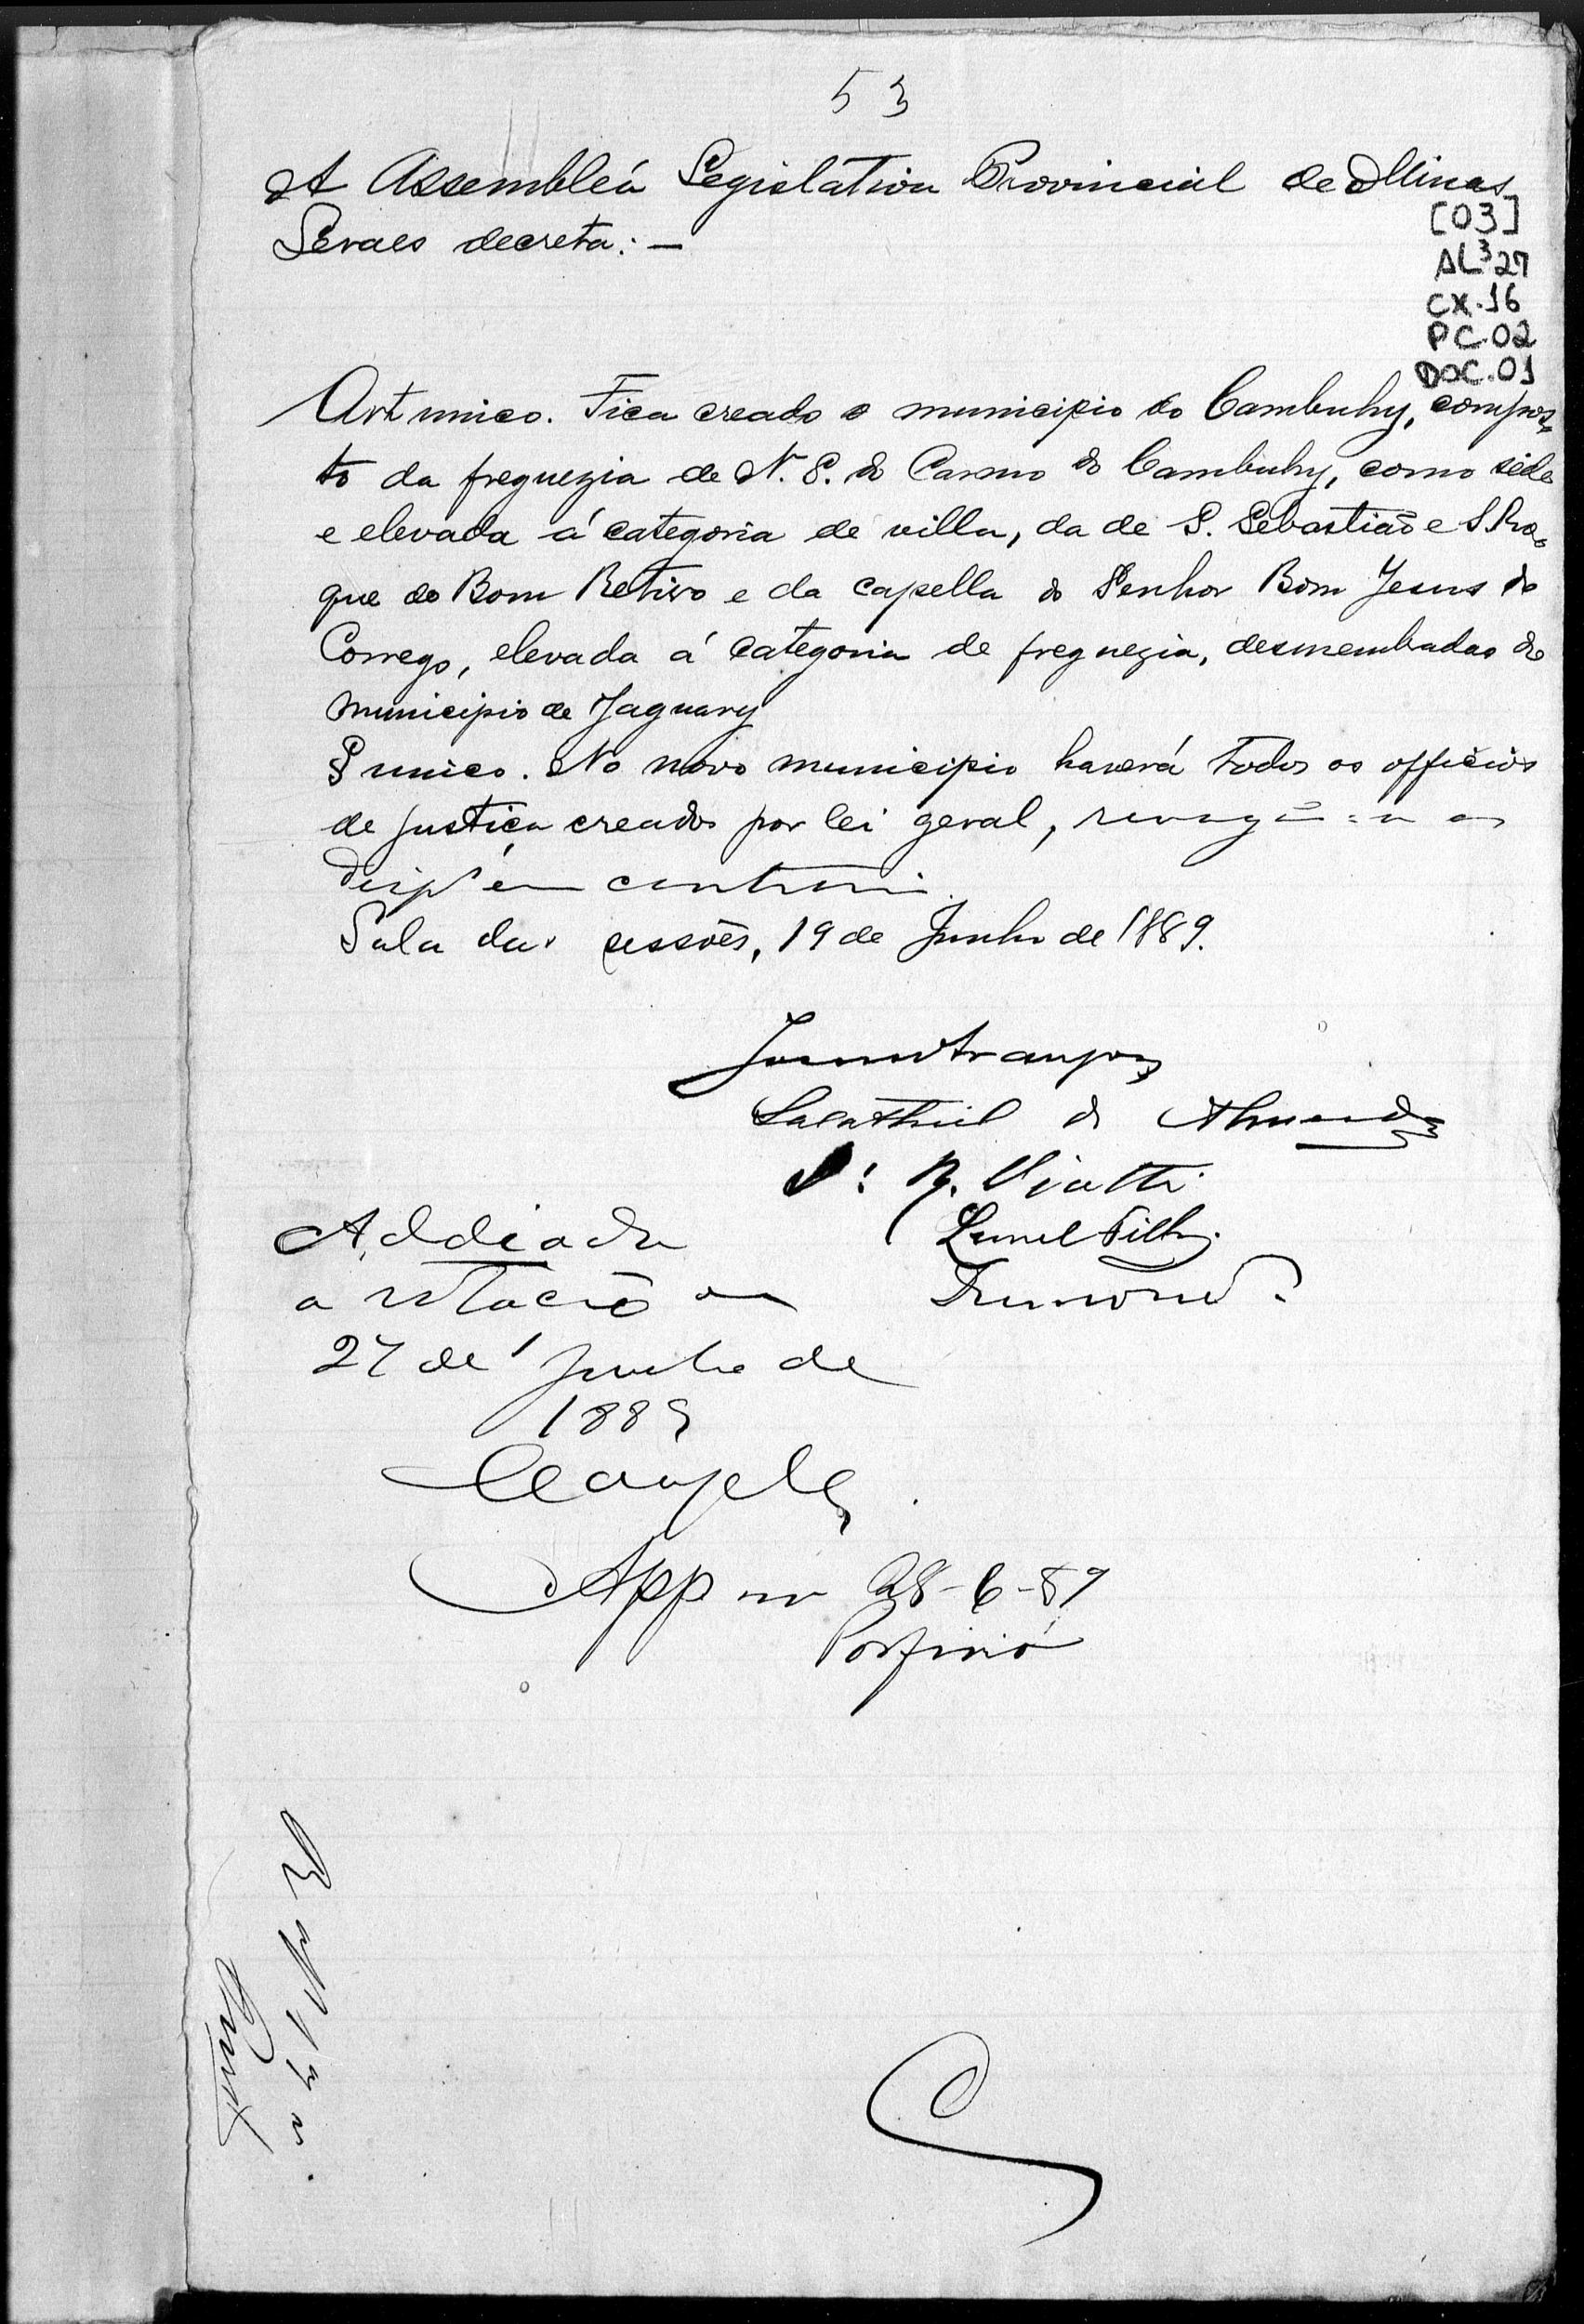 53
A Assembléa Legislativa Provincial de Minas
Geraes decreta: —
[03]
AL³27
CX.16
PC.02
DOC.01
Art unico. Fica creado o municipio do Cambuhy, compos-
to da freguezia de N. S. do Carmo do Cambuhy, como séde
e elevada á categoria de villa, da de S. Sebastião e S Ro-
que do Bom Retiro e da capella do Senhor Bom Jesus do
Corrego, elevada á categoria de freguezia, desmembradas do
municipio de Jaguary
§ unico. No novo municipio haverá todos os officios
de justiça creados por lei geral, revogadas as
disp em contrario.
Sala das sessões, 19 de Junho de 1889.
Salathiel de Almeida
Viotti
Lemel Filho.
Drumond.
Addiada
a votação em
27 de Junho de
1889
App em 28-6-89
Porfirio